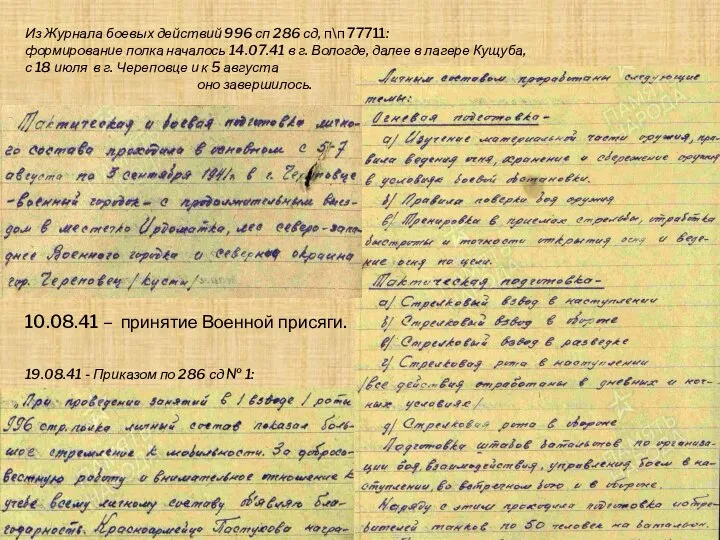 Из Журнала боевых действий 996 сп 286 сд, п\п 77711:
формирование полка началось 14.07.41 в г. Вологде, далее в лагере Кущуба,
с 18 июля в г. Череповце и к 5 августа
оно завершилось.
Тактическая и боевая подготовка лично-
го состава проходила в основном с 5-7
августа по 3 сентября 1941г. в г. Череповце
-военный городок- с продолжительным выез-
дом в местечко Ирдоматка, лес северо-запа-
днее Военного городка и северная окраина
гор. Череповец /кусты/
10.08.41 – принятие Военной присяги.
19.08.41 - Приказом по 286 сд № 1:
При проведении занятий в 1 взводе 1 роты
996 стр. полка личный состав показал боль-
шое стремление к мобильности. За добросо-
вестную работу и внимательное отношение к
учебе всему личному составу объявляю бла-
годарность. Красноармейца Пастухова награ-
Личным составом проработаны следующие
темы:
Огневая подготовка-
а) Изучение материальной части оружия, пра-
вила ведения огня, хранение и сбережение оружия
в условиях боевой обстановки.
б) Правила поверки боя оружия
в) Тренировка в приемах стрельбы, отработка
быстроты и точности открытия огня и веде-
ние огня по цели.
Тактическая подготовка-
а) Стрелковый взвод в наступлении
б) Стрелковый взвод в обороне
в) Стрелковый взвод в разведке
г) Стрелковая рота в наступлении
/все действия отработаны в дневных и ноч-
ных условиях/
д) Стрелковая рота в обороне
Подготовка штабов батальонов по организа-
ции боя, взаимодействия, управления боем в на-
ступлении, во встречном бою и в обороне.
Наряду с этим проходила подготовка истре-
бителей танков по 50 человек на батальон.
ПАМЯТЬ
НАРОДА